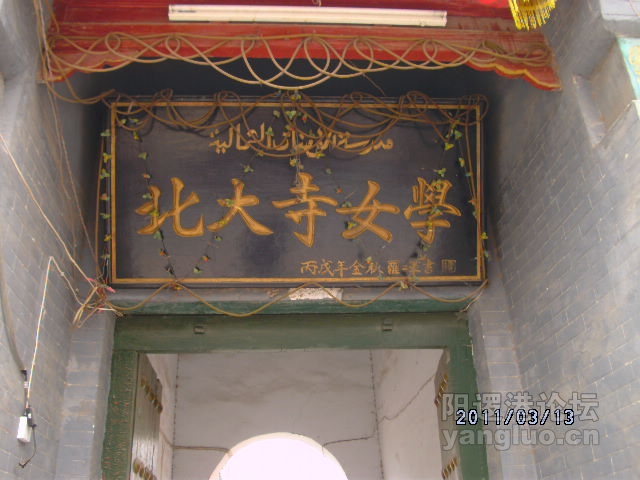 مدرسة البنات الشمالية
北大寺女學
丙戌年金秋
2011/03/13
阳逻港论坛
yangluo.cn